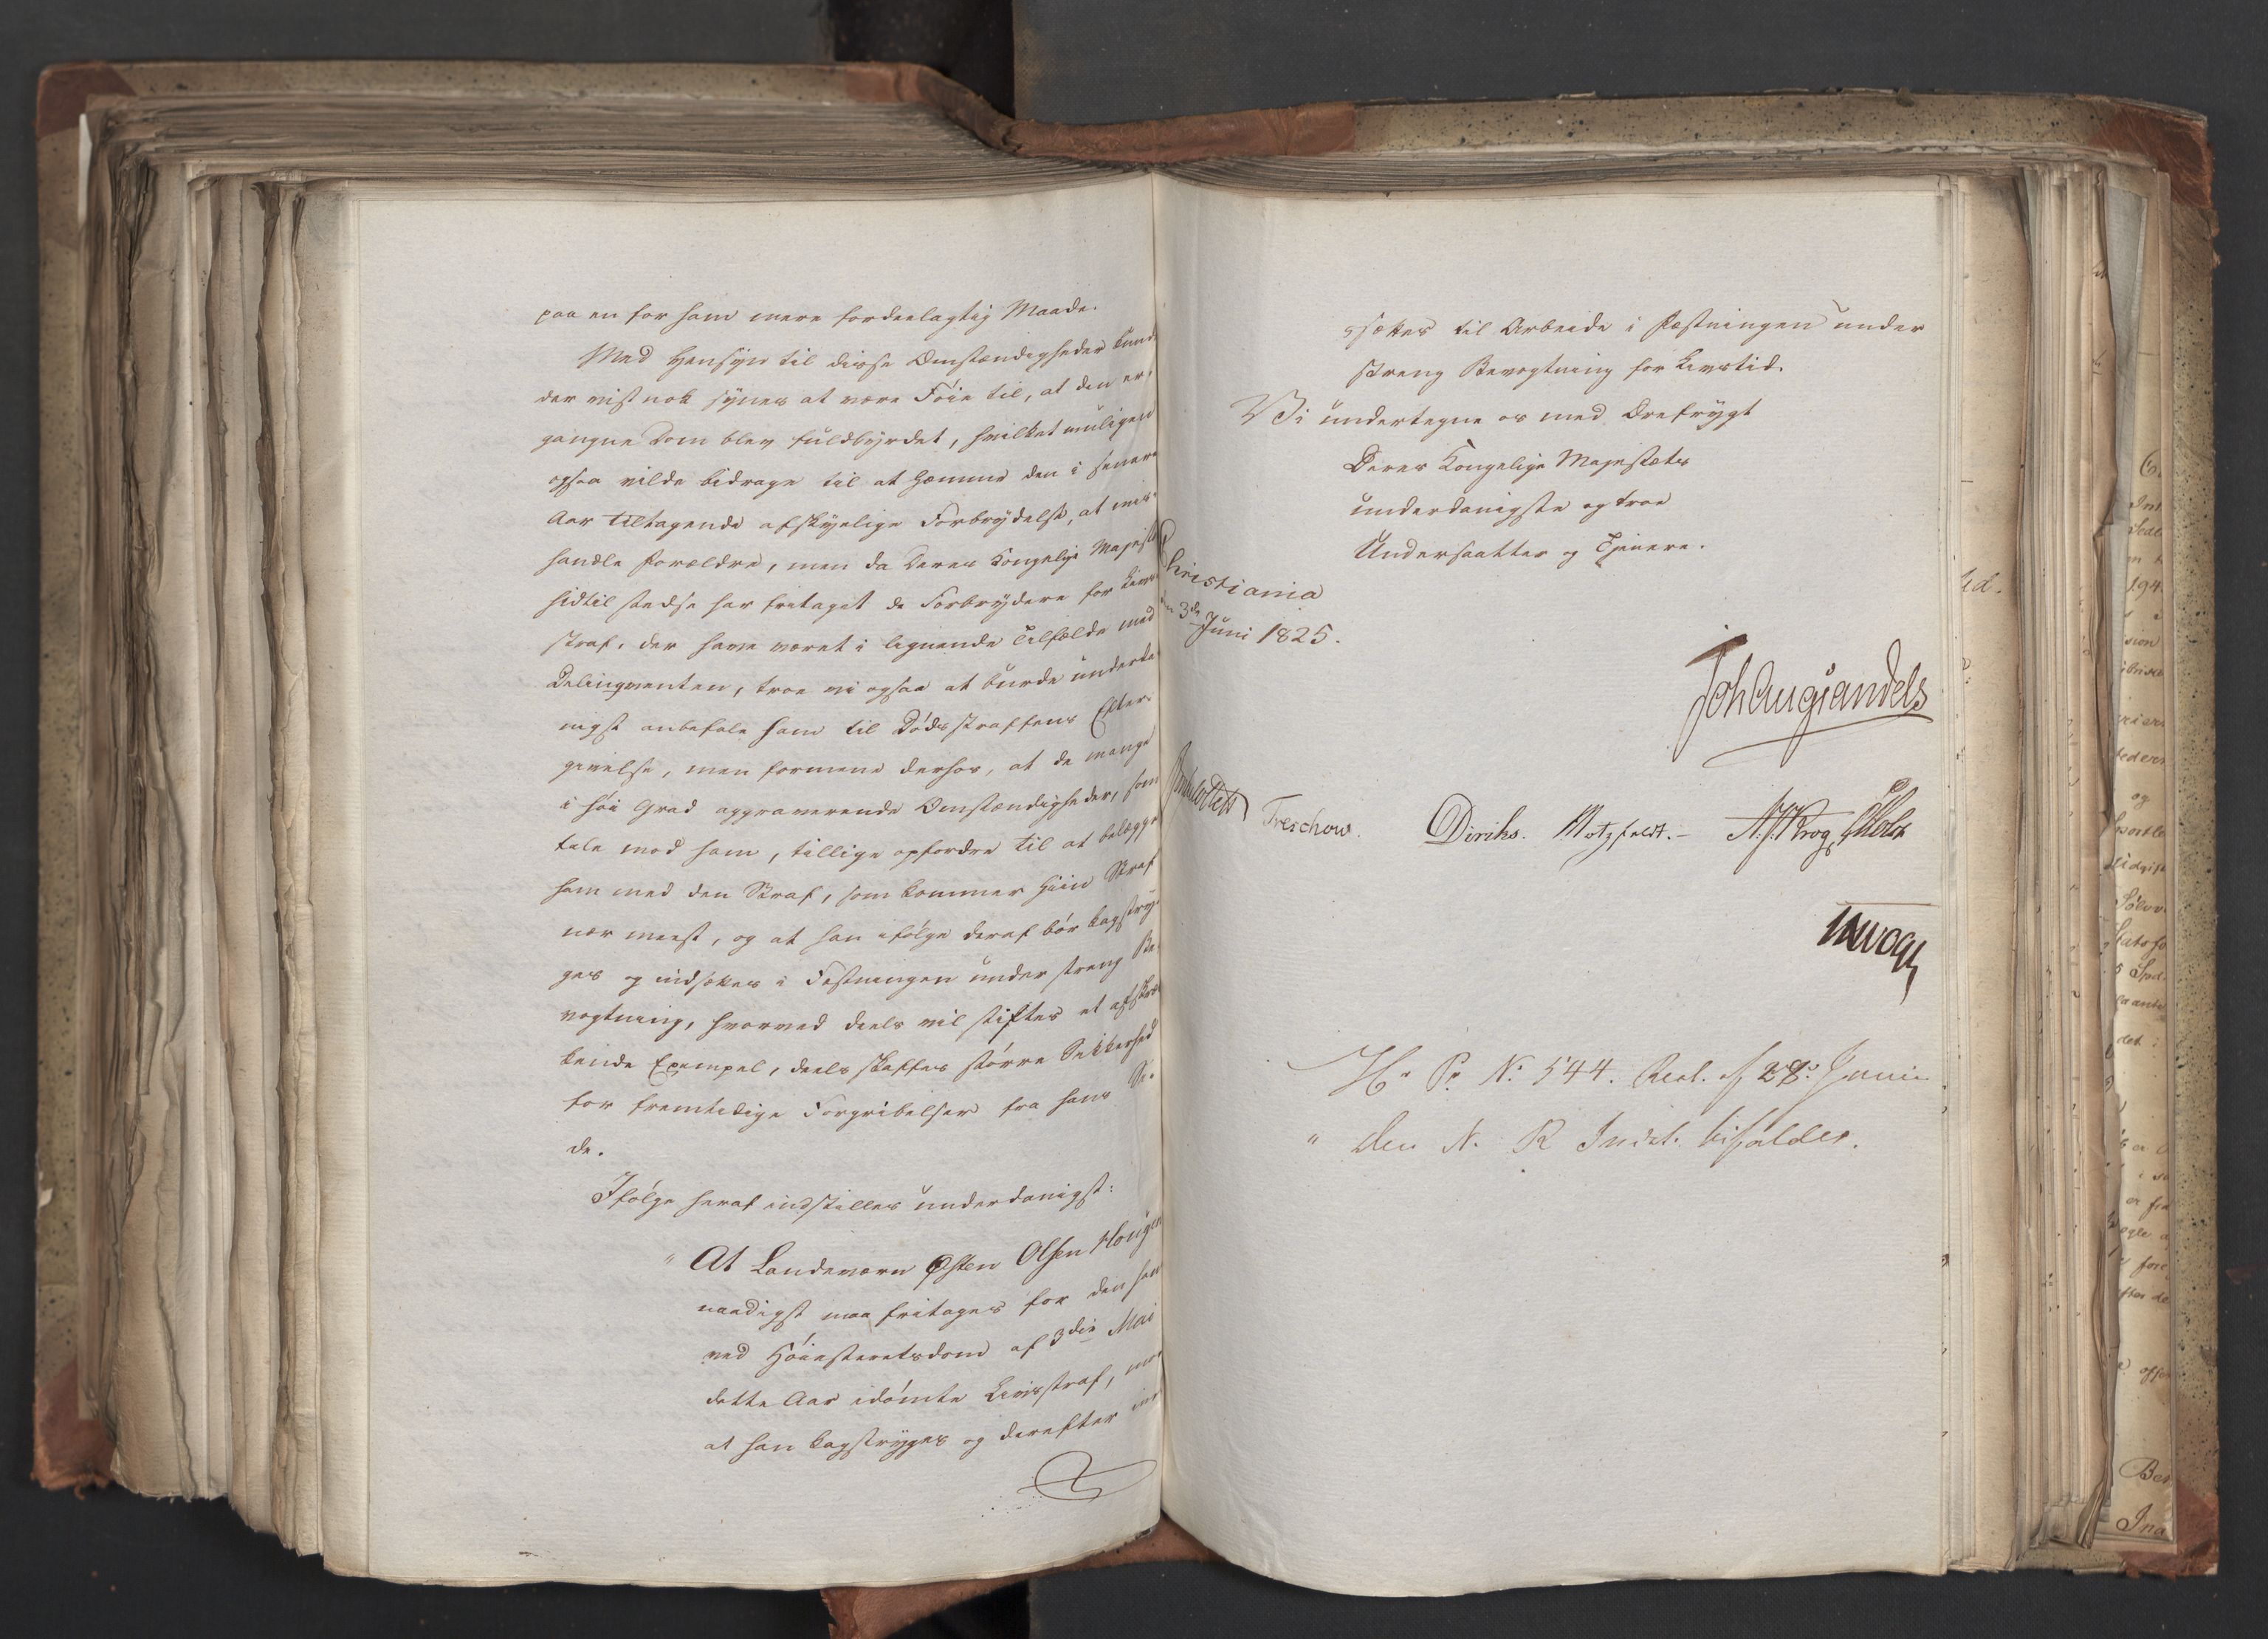 paa en for ham mere fordeelagtig Maade.
Med Hensyn til disse Omstændigheder kunde
der vist nok synes at være Föie til, at den er-
gangne Dom blev fuldbyrdet, hvilket muligen
ogsaa vilde bidrage til at hæmme den i senere
Aar tiltagende afskyelige Forbrydelse, at mis-
handle Forældre, men da Deres Kongelige Majestæt
hidtil stedse har fritaget de Forbrydere for Livs-
straf, der have været i lignende Tilfælde med
Delinqventen, troe vi ogsaa at burde underda-
nigst anbefale ham til Dödsstraffens Efter-
givelse, men formene derhos, at de mange
i höi Grad aggraverende Omstændigheder, som
tale mod ham, tillige opfordre til at belægge
ham med den Straf, som kommer hiin Straf
nær meest, og at han ifölge deraf bör kagstry-
ges og indsættes i Fæstningen under streng Be-
vogtning, hvorved deels vil stiftes et afskræk-
kende Exempel, deels skaffes större Sikkerhed
for fremtidige Forgribelser fra hans Si-
de.
Ifölge heraf indstilles underdanigst:
" At Landeværn Østen Olsen Hougen
naadigst maa fritages for den ham
ved Höiesteretsdom af 3die Mai
dette Aar idömte Livsstraf, mod
at han kagstryges og derefter ind
sættes til Arbeide i Fæstningen under
streng Bevogtning for Livstid.
Vi undertegne os med Ærefrygt
Deres Kongelige Majestæts
underdanigste og troe
Undersaatter og Tjenere.
Christiania
den 3de Juni 1825.
Joh Aug Sandels
Treschow. Diriks. Motzfeldt. – Krog Holst
H. P. N: 544. Resl. af 28: Junii
" Den N. R Indst. bifaldes.